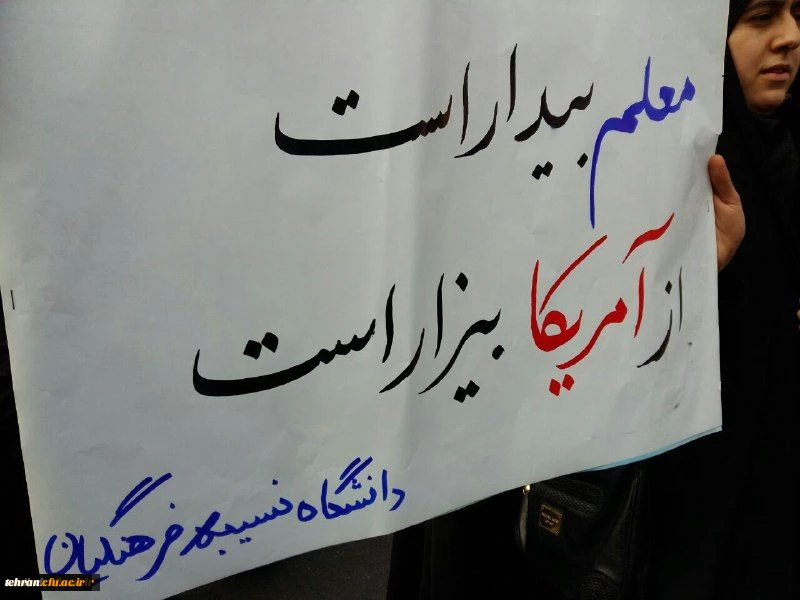 معلم بیدار است
از آمریکا بیزار است
دانشگاه نسیبه فرهنگیان
tehran.cfu.ac.ir